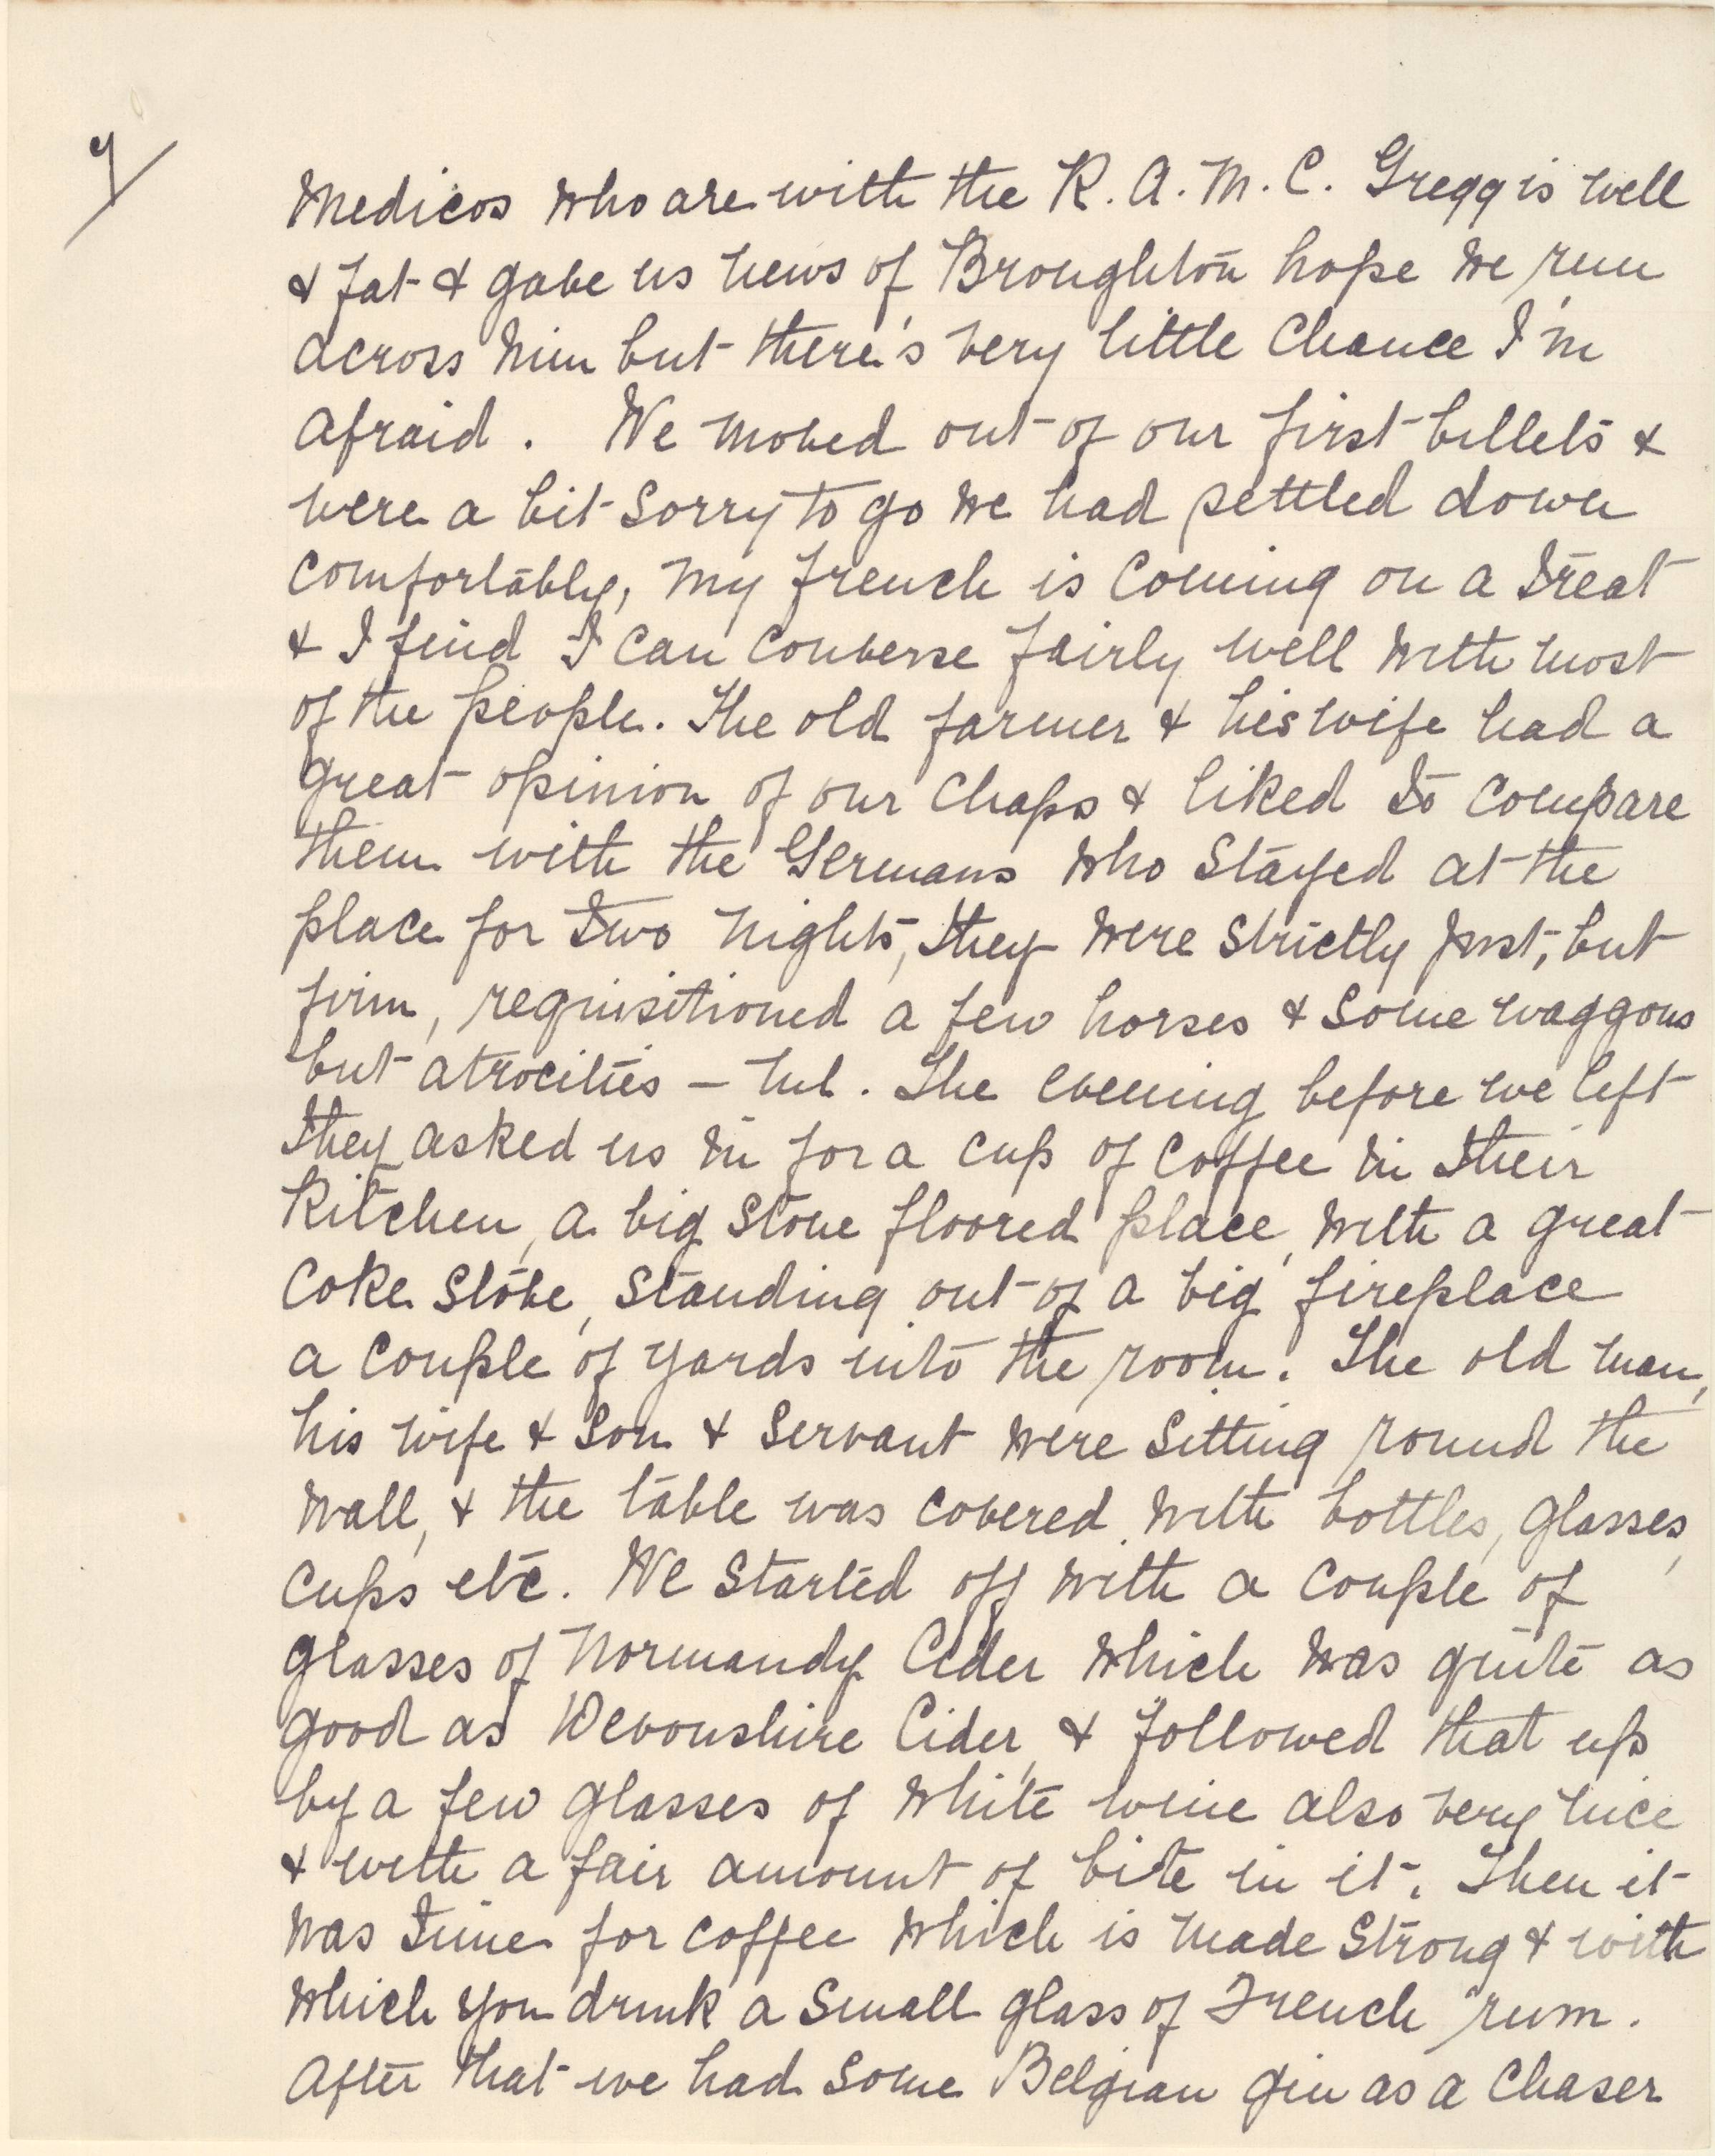 Medicos who are with the R. A. M. C. Gregg is well
& fat & gave us news of Broughton hope we run
across him but there's very little chance I'm
afraid. We moved out of our first billets &
were a bit sorry to go we had settled down
comfortably, my french is coming on a treat
& I find I can converse fairly well with most
of the people. The old farmer & his wife had a
great opinion of our chaps & liked to compare
them with the Germans who stayed at the
place for two nights, they were strictly just, but
firm, requisitioned a few horses & some waggons
but atrocities – nil. The evening before we left
they asked us in for a cup of coffee in their
kitchen, a big stone floored place, with a great
coke stove, standing out of a big fireplace
a couple of yards into the room. The old man,
his wife & son & servant were sitting round the
wall, & the table was covered with bottles, glasses,
cups etc. We started off with a couple of
glasses of Normandy Cider which was quite as
good as Devonshire Cider, & followed that up
by a few glasses of white wine also very nice
& with a fair amount of bite in it. Then it
was time for coffee which is made strong & with
which you drink a small glass of French rum.
After that we had some Belgian gin as a chaser